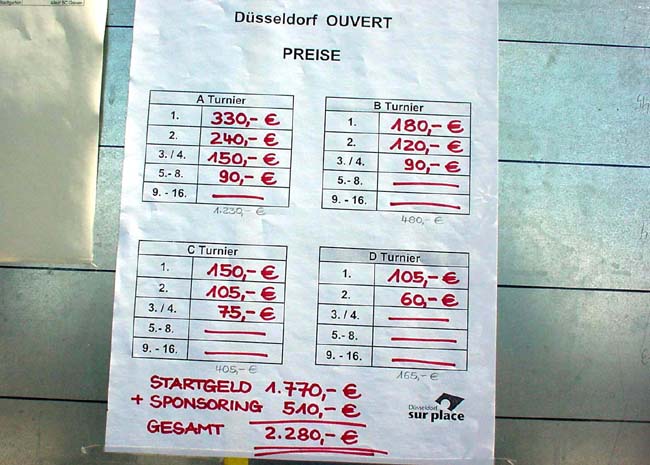 Düsseldorf OUVERT
PREISE
A Turnier
1. 330,- €
2. 240,- €
3. / 4. 150,- €
5.- 8. 90,- €
9. - 16.
1.230,- €
B Turnier
1. 180,- €
2. 120,- €
3. / 4 90,- €
5.- 8.
9. - 16.
480,- €
C Turnier
1. 150,- €
2. 105,- €
3. / 4. 75,- €
5.- 8.
9. - 16.
405,- €
D Turnier
1. 105,- €
2. 60,- €
3. / 4.
5.- 8.
9. - 16.
165,- €
STARTGELD 1.770,- €
+ SPONSORING 510,- €
GESAMT 2.280,- €
Düsseldorf
sur place